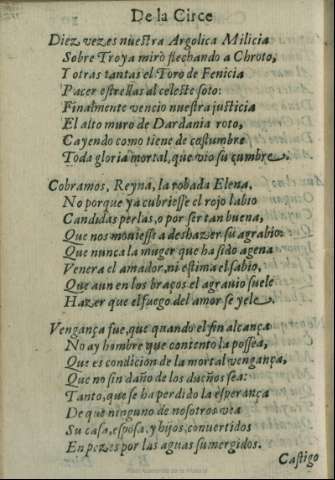 De la Circe
Diez vezes nuestra Argolica Milicia
Sobre Troya mirò flechando a Chroto,
Y otras tantas el Toro de Fenicia
Pacer estrellas al celeste soto:
Finalmente vencio nuestra justicia
El alto muro de Dardania roto,
Cayendo como tiene de costumbre
Toda gloria mortal, que vio su cumbre.
Cobramos, Reyna, la robada Elena,
No porque ya cubriesse el rojo labio
Candidas perlas, o por ser tan buena,
Que nos moniesse a deshazer su agrabio:
Que nunca la muger que ha sido agena
Venera el amador, ni estima el sabio,
Que aun en los braços el agravio suele
Hazer que el fuego del amor se yele.
Vengança fue, que quando el fin alcança
No ay hombre que contento la possea,
Que es condicion de la mortal vengança,
Que no sin daño de los dueños sea:
Tanto, que se ha perdido la esperança
De que ninguno de nosotros vea
Su casa, esposa, y hijos, convertidos
En pezes por las aguas sumergidos.
Castigo